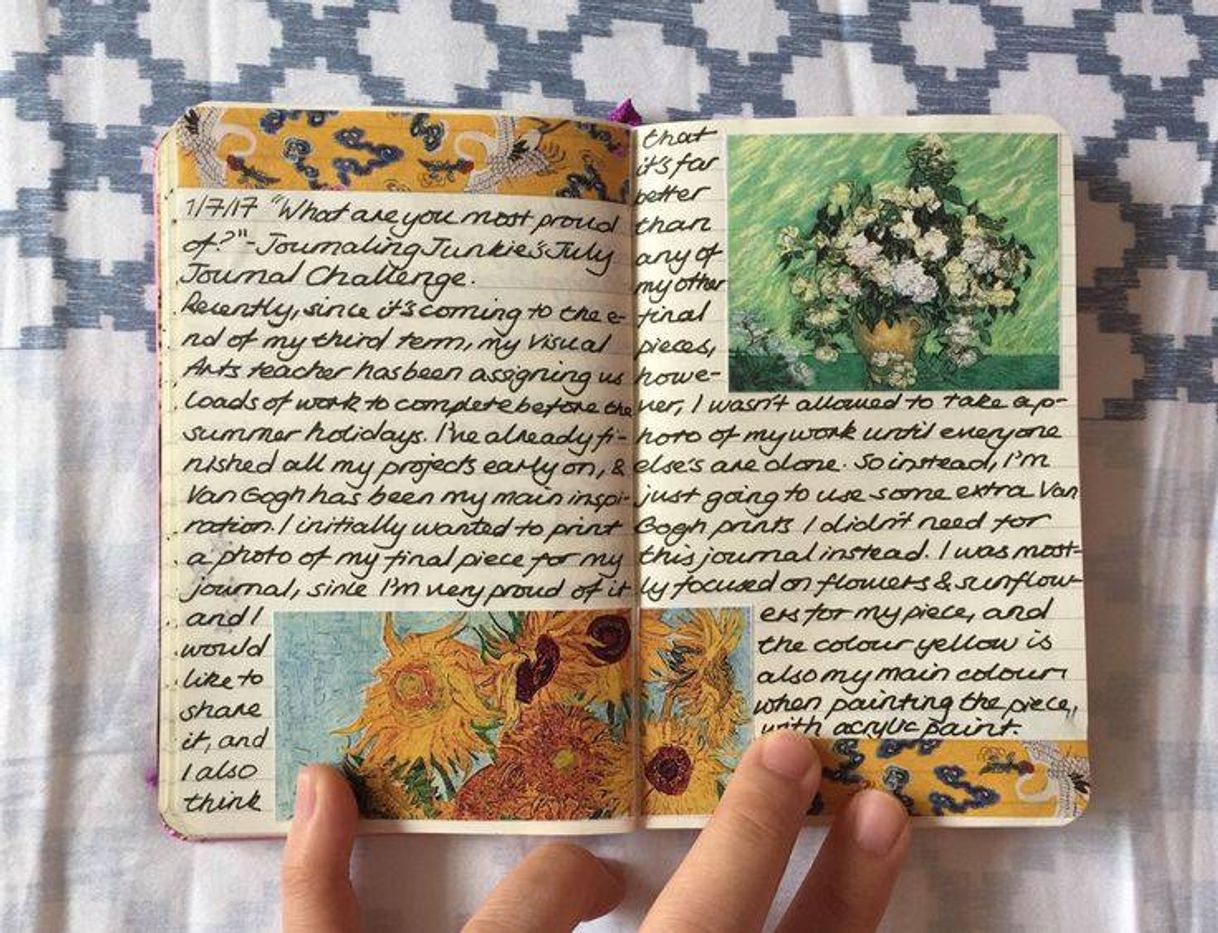 1/7/17 "What are you most proud
of?" - Journaling Junkie's July
Journal Challenge.
Recently, since it's coming to the e-
nd of my third term, my Visual
Arts teacher has been assigning us
loads of work to complete before the
summer holidays. I've already fi-
nished all my projects early on, &
Van Gogh has been my main inspi-
ration. I initially wanted to print
a photo of my final piece for my
journal, since I'm very proud of it
and I
would
like to
share
it, and
I also
think
that
it's far
better
than
any of
my other
final
pieces,
howe-
ver, I wasn't allowed to take a p-
hoto of my work until everyone
else's are done. So instead, I'm
just going to use some extra Van
Gogh prints I didn't need for
this journal instead. I was most-
ly focused on flowers & sunflow-
ers for my piece, and
the colour yellow is
also my main colour
when painting the piece,
with acrylic paint.